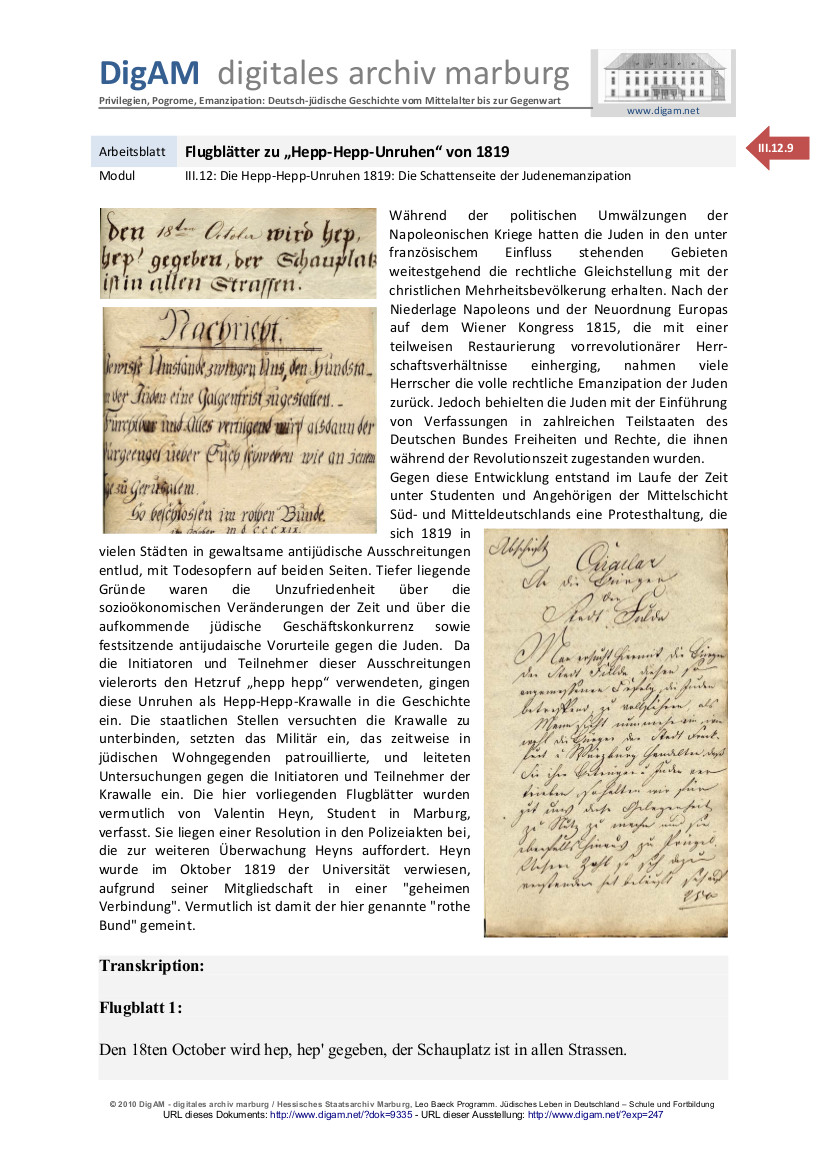 DigAM digitales archiv marburg
Privilegien, Pogrome, Emanzipation: Deutsch-jüdische Geschichte vom Mittelalter bis zur Gegenwart
www.digam.net
Arbeitsblatt Flugblätter zu „Hepp-Hepp-Unruhen“ von 1819
III.12.9
Modul III.12: Die Hepp-Hepp-Unruhen 1819: Die Schattenseite der Judenemanzipation
den 18ten October wird hep,
hep' gegeben, der Schauplatz
ist in allen Strassen.
Nachricht.
Gewisse Umstände zwingen Uns, den Hundsta-
der Juden eine Galgenfrist zugestatten. -
Furchtbar und Alles vertilgend wird alsdann der
Würgeengel ueber Euch schweben wie an jenem
ge zu Gerusalem.
So beschlossen im rothen Bunde.
Während der politischen Umwälzungen der
Napoleonischen Kriege hatten die Juden in den unter
französischem Einfluss stehenden Gebieten
weitestgehend die rechtliche Gleichstellung mit der
christlichen Mehrheitsbevölkerung erhalten. Nach der
Niederlage Napoleons und der Neuordnung Europas
auf dem Wiener Kongress 1815, die mit einer
teilweisen Restaurierung vorrevolutionärer Herr-
schaftsverhältnisse einherging, nahmen viele
Herrscher die volle rechtliche Emanzipation der Juden
zurück. Jedoch behielten die Juden mit der Einführung
von Verfassungen in zahlreichen Teilstaaten des
Deutschen Bundes Freiheiten und Rechte, die ihnen
während der Revolutionszeit zugestanden wurden.
Gegen diese Entwicklung entstand im Laufe der Zeit
unter Studenten und Angehörigen der Mittelschicht
Süd- und Mitteldeutschlands eine Protesthaltung, die
sich 1819 in
vielen Städten in gewaltsame antijüdische Ausschreitungen
entlud, mit Todesopfern auf beiden Seiten. Tiefer liegende
Gründe waren die Unzufriedenheit über die
sozioökonomischen Veränderungen der Zeit und über die
aufkommende jüdische Geschäftskonkurrenz sowie
festsitzende antijudaische Vorurteile gegen die Juden. Da
die Initiatoren und Teilnehmer dieser Ausschreitungen
vielerorts den Hetzruf „hepp hepp“ verwendeten, gingen
diese Unruhen als Hepp-Hepp-Krawalle in die Geschichte
ein. Die staatlichen Stellen versuchten die Krawalle zu
unterbinden, setzten das Militär ein, das zeitweise in
jüdischen Wohngegenden patrouillierte, und leiteten
Untersuchungen gegen die Initiatoren und Teilnehmer der
Krawalle ein. Die hier vorliegenden Flugblätter wurden
vermutlich von Valentin Heyn, Student in Marburg,
verfasst. Sie liegen einer Resolution in den Polizeiakten bei,
die zur weiteren Überwachung Heyns auffordert. Heyn
wurde im Oktober 1819 der Universität verwiesen,
aufgrund seiner Mitgliedschaft in einer "geheimen
Verbindung". Vermutlich ist damit der hier genannte "rothe
Bund" gemeint.
Abschrift
Circular
An die Bürger
der
Stadt Fulda
Transkription:
Flugblatt 1:
Den 18ten October wird hep, hep' gegeben, der Schauplatz ist in allen Strassen.
© 2010 DigAM - digitales archiv marburg / Hessisches Staatsarchiv Marburg, Leo Baeck Programm. Jüdisches Leben in Deutschland – Schule und Fortbildung
URL dieses Dokuments: http://www.digam.net/?dok=9335 - URL dieser Ausstellung: http://www.digam.net/?exp=247